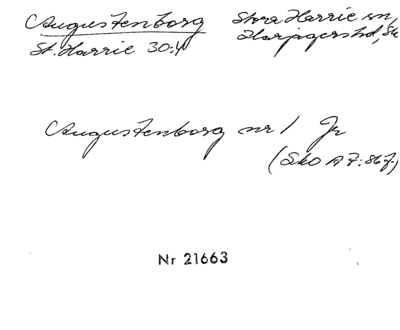 Augustenborg Stora Harrie sn,
St. Harrie 30:4 Harjagers hd, Sk
Augustenborg nr 1 Jr
(Sko A 7:86 f.)
Nr 21663